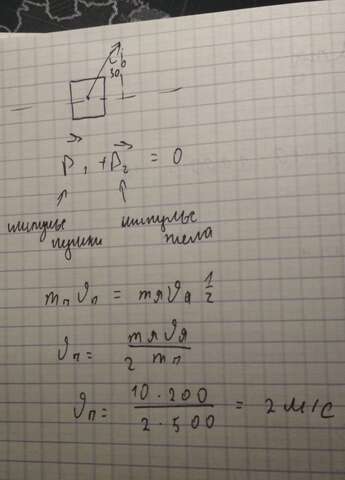 30
P⃗₁ + P⃗₂ = 0
импульс пушки
импульс тела
mₙ𝜗ₙ = mя𝜗я 1/2
𝜗ₙ = mя𝜗я / 2 mₙ
𝜗ₙ = 10 · 200 / 2 · 500 = 2 м/с